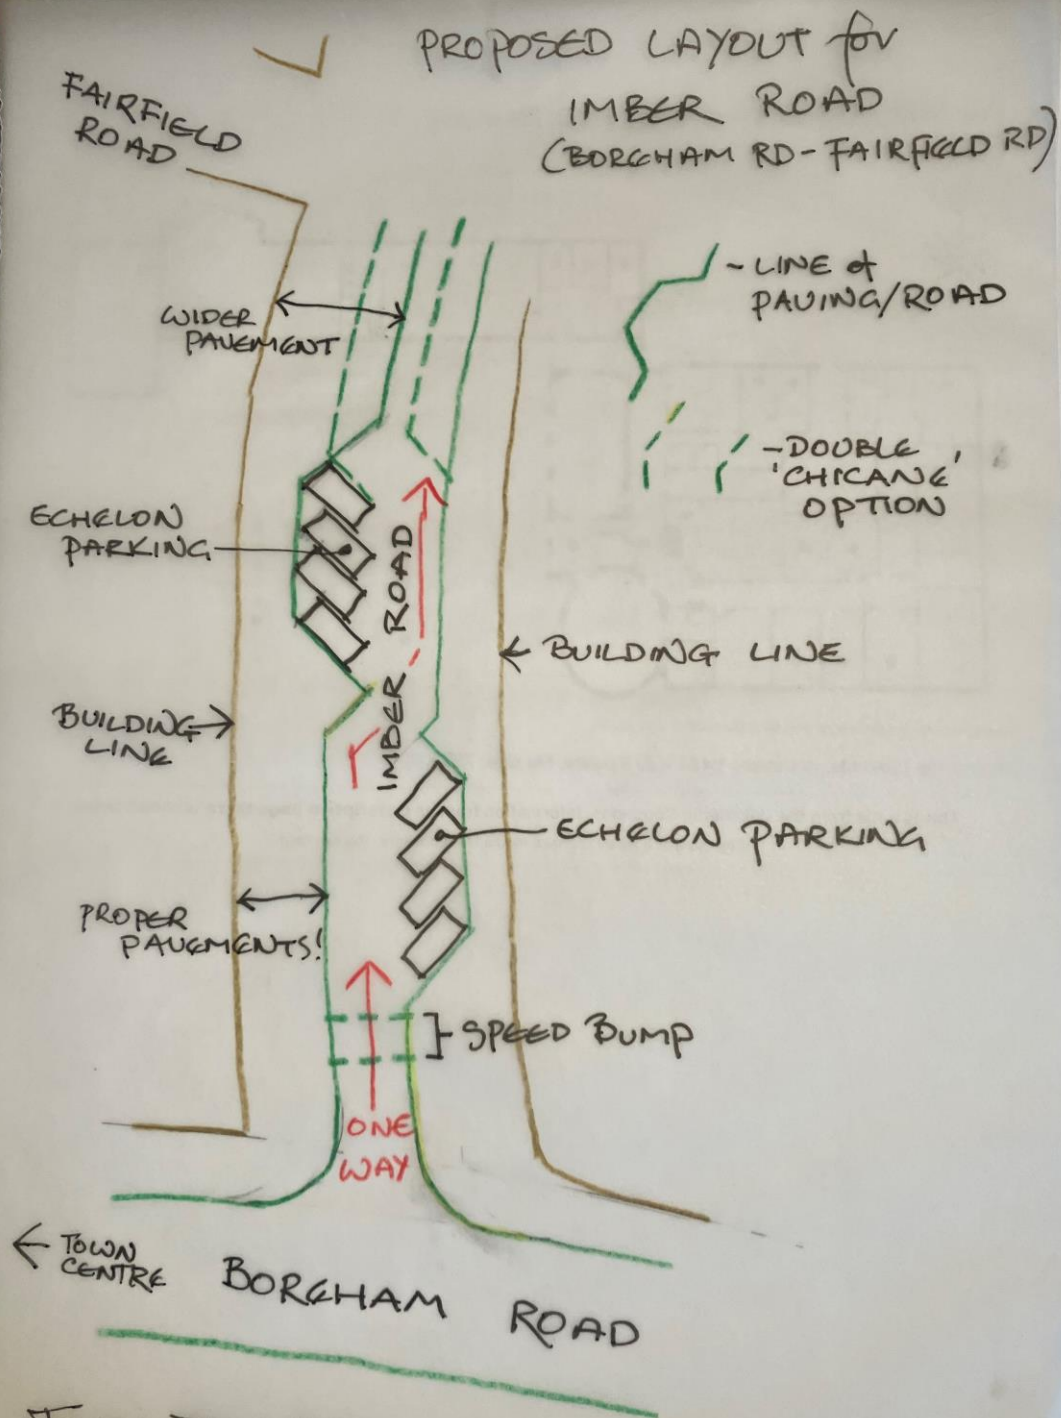 PROPOSED LAYOUT for
IMBER ROAD
(BOREHAM RD - FAIRFIELD RD)
FAIRFIELD
ROAD
- LINE of
PAVING/ROAD
WIDER
PAVEMENT
- DOUBLE
'CHICANE'
OPTION
ECHELON
PARKING
IMBER ROAD
← BUILDING LINE
BUILDING →
LINE
ECHELON PARKING
PROPER
PAVEMENTS!
SPEED BUMP
ONE
WAY
← TOWN
CENTRE
BOREHAM ROAD